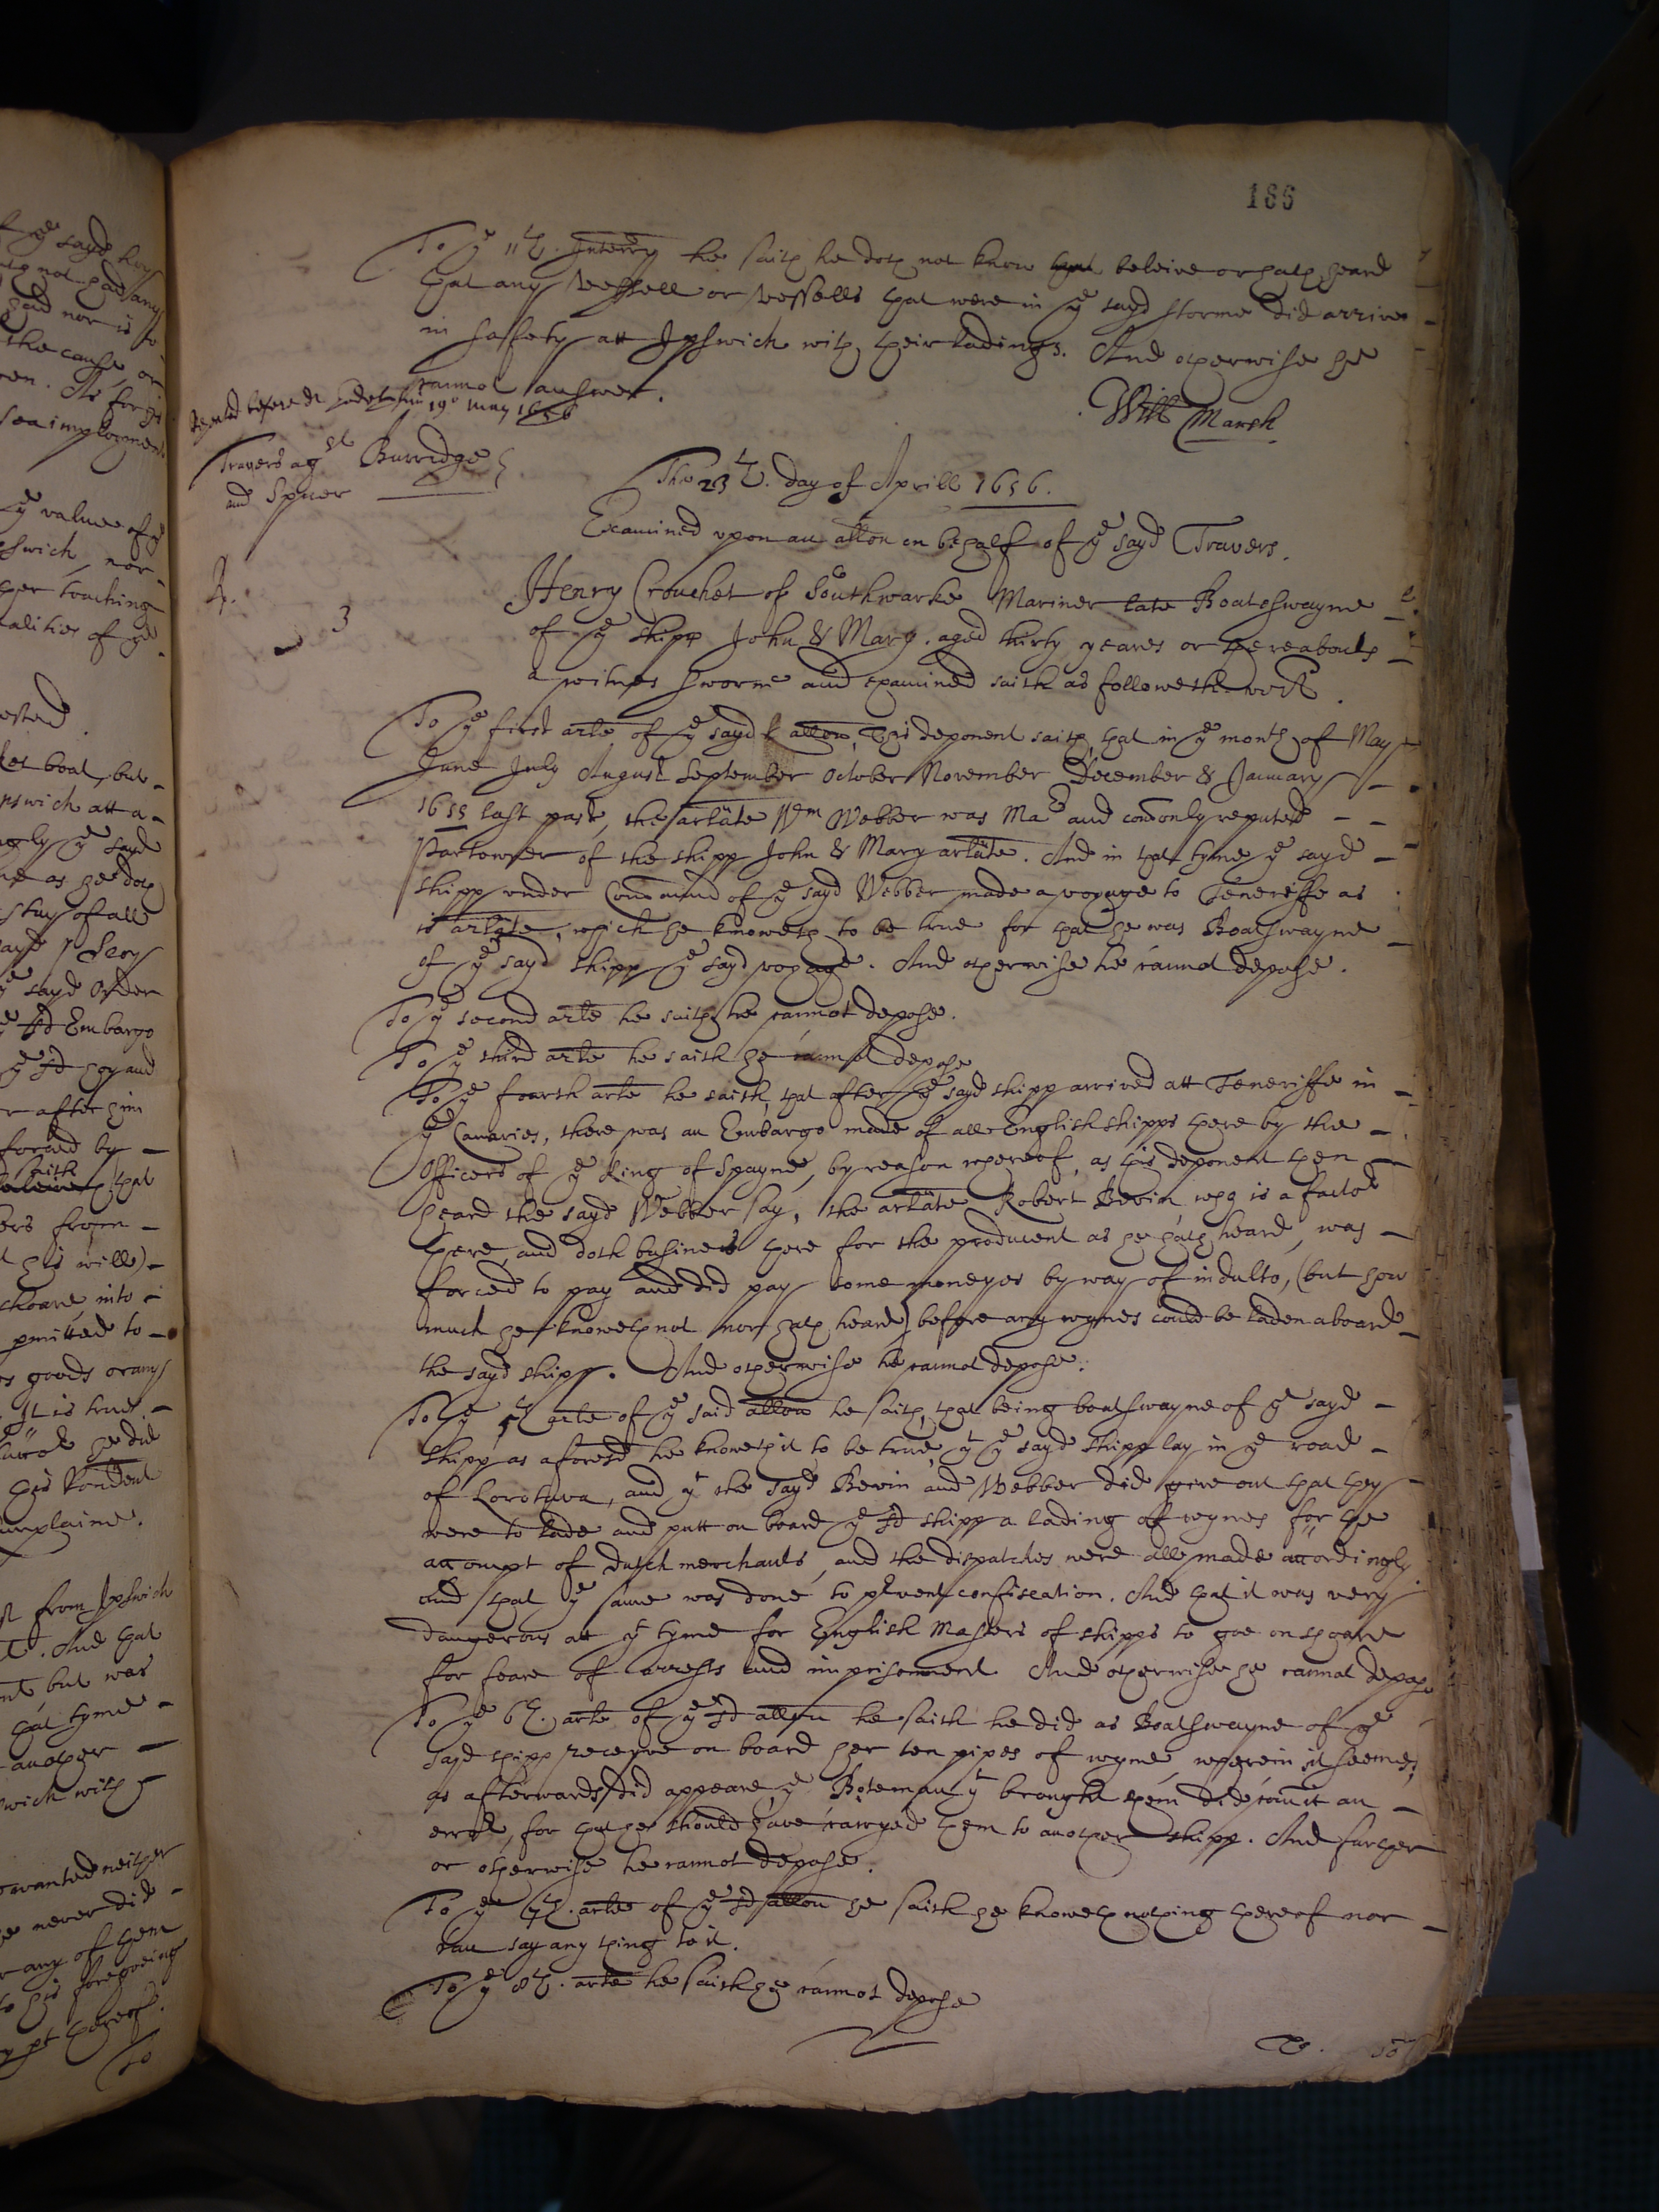 186
To ye 11th. Interry he saith he doth not know beleive or hath heard
that any vessell or vessells that were in ye sayd storme did arrive -
in saffety att Ipswich with their ladings. And otherwise he
cannot answer.
Repeated before dr Godolphin 19o May 1656
Will Marsh
Travers agst Burridge
and Spicer
The 23th. day of Aprill 1656.
Examined upon an allon on behalf of ye sayd Travers.
A. 3
Henry Crouchet of Southwarke Mariner late Boateswayne
of ye shipp John & Mary. aged thirty yeares or thereabouts -
a witnes sworne and examined saith as followeth vizt.
To ye first arle of ye sayd allon, this deponent saith, that in ye month of May
June July August September October November December & January -
1655 last past, the arlate Wm Webber was Mar and comonly reputed - -
Partowner of the shipp John & Mary arlate. And in that tyme ye sayd -
shipp under Command of ye sayd Webber made a voyage to Teneriffe as
is arlate, which he knoweth to be true for that he was Boatswayne -
of ye sayd shipp ye sayd voyage. And otherwise he cannot depose.
To ye second arle he saith he cannot depose.
To ye third arle he saith he cannot depose
To ye fourth arle he saith, that after ye sayd shipp arrived att Teneriffe in -
ye Canaries, there was an Embargo made of all English shipps there by the -
Officers of ye King of Spayne, by reason whereof, as this deponent then -
heard the sayd Webber say, the arlate Robert Bevin who is a factor
there, and doth busines there for the producent as he hath heard, was -
forced to pay and did pay some moneyes by way of indulto, (but how
much he knoweth not nor hath heard) before any wynes could be laden aboard -
the sayd shipp. And otherwise he cannot depose.
To ye 5th arle of ye said allon he saith, that being boatswayne of ye sayd -
shipp as aforesd he knoweth it to be true, yt ye sayd shipp lay in ye road -
of Lorotava, and yt the sayd Bevin and Webber did give out that they -
were to lade and putt on board ye sd shipp a lading of wynes for the
accompt of Dutch merchants, and the dispatches were all made accordingly
and that ye same was done to prvent confiscation. And that it was very
dangerous att yt tyme for English Masters of shipps to goe on shoare
for feare of arrests and imprisonment And otherwise he cannot depose
To ye 6th. arle of ye sd allon he saith he did as Boatswayne of ye
sayd shipp receyve on board her ten pipes of wyne, wherein it seemes,
as afterwards did appeare, ye Boteman yt brought them did comitt an -
error, for that he should have carryed them to another shipp. And further
or otherwise he cannot depose.
To ye 7th. arle of ye sd allon he saith he knoweth nothing thereof nor -
can say any thing to it.
To ye 8th. arle he saith he cannot depose
To